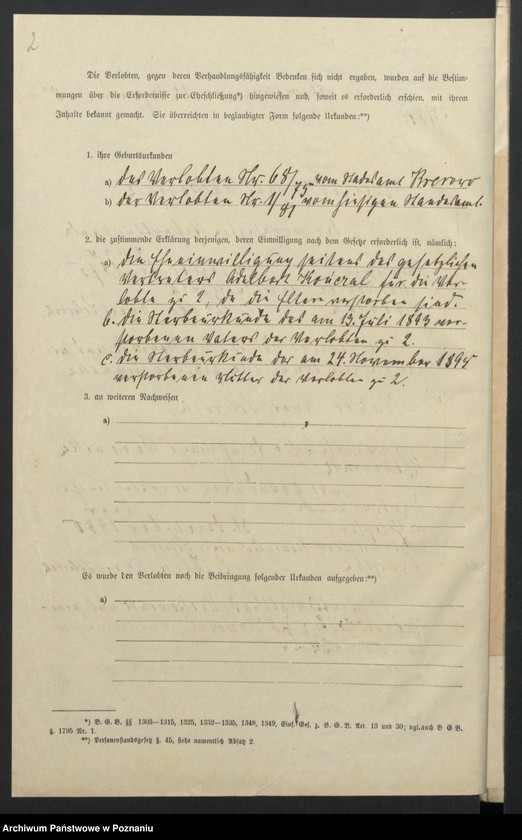 2
Die Verlobten, gegen deren Verhandlungsfähigkeit Bedenken sich nicht ergaben, wurden auf die Bestim-
mungen über die Erfordernisse zur Eheschließung*) hingewiesen und, soweit es erforderlich erschien, mit ihrem
Inhalte bekannt gemacht. Sie überreichten in beglaubigter Form folgende Urkunden:**)
1. ihre Geburtsurkunden
a) des Verlobten Nr. 68/75 vom Standesamt
b) der Verlobten Nr. 1/81 vom hiesigen Standesamt.
2. die zustimmende Erklärung derjenigen, deren Einwilligung nach dem Gesetze erforderlich ist, nämlich:
a) die Eheeinwilligung seitens des gesetzlichen
Vertreters Adalbert für die Ver-
lobte zu 2, da die Eltern verstorben sind.
b. die Sterbeurkunde des am 13. Juli 1893 ver-
storbenen Vaters der Verlobten zu 2.
c. die Sterbeurkunde der am 24. November 1895
verstorbenen Mutter der Verlobten zu 2.
3. an weiteren Nachweisen
a)
Es wurde den Verlobten noch die Beibringung folgender Urkunden aufgegeben:**)
a)
*) B. G. B. §§ 1303—1315, 1325, 1332—1335, 1348, 1349, Einf. Ges. z. B. G. B. Art. 13 und 30; vgl. auch B G B.
§. 1795 Nr. 1.
**) Personenstandsgesetz §. 45, siehe namentlich Absatz 2.
Archiwum Państwowe w Poznaniu
Archiwum Państwowe w Poznaniu